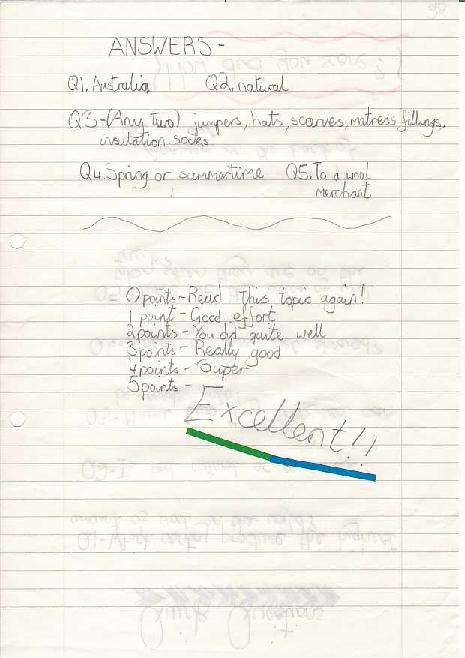 ANSWERS-
Q1. Australia Q2. natural
Q3-(Any two) jumpers, hats, scarves, matress fillings,
insulation socks.
Q4. Spring or summertime Q5. To a wool
merchant
0 points - Read this topic again!
1 point - Good effort
2 points - You did quite well
3 points - Really good
4 points - Super
5 points -
Excellent!!